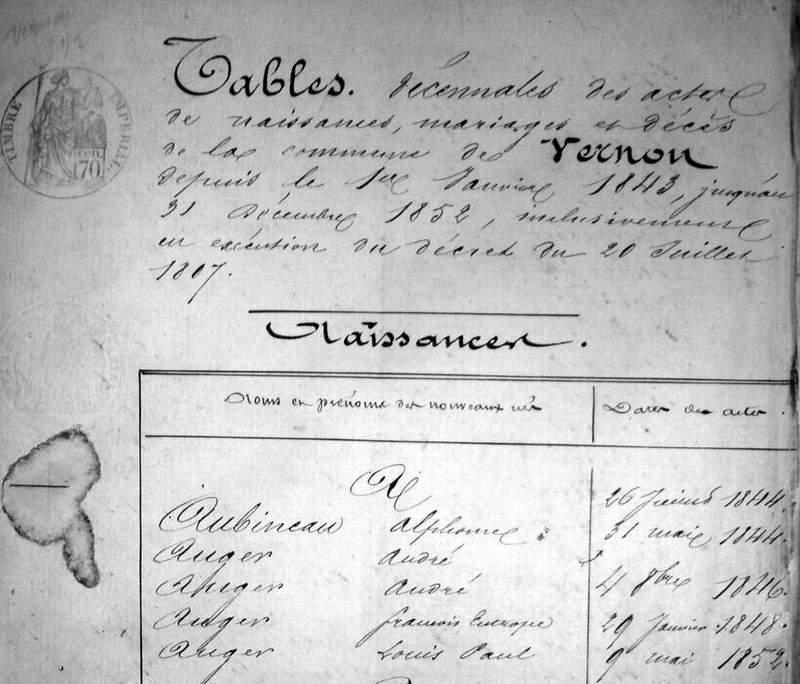 TIMBRE IMPERIAL
70
Tables. décennales des actes
de naissances, mariages et décès
de la commune de Vernon
depuis le 1er Janvier 1843, jusqu'au
31 Décembre 1852, inclusivement
en exécution du décret du 20 Juillet
1807.
Naissances.
Noms et prénoms des nouveaux nés
Dates des actes.
A
Aubineau Alphonse 26 1844.
Auger André 31 mai 1844.
Auger André 4 8bre 1846.
Auger francois Eutrope 29 Janvier 1848.
Auger Louis Paul 9 mai 1852.